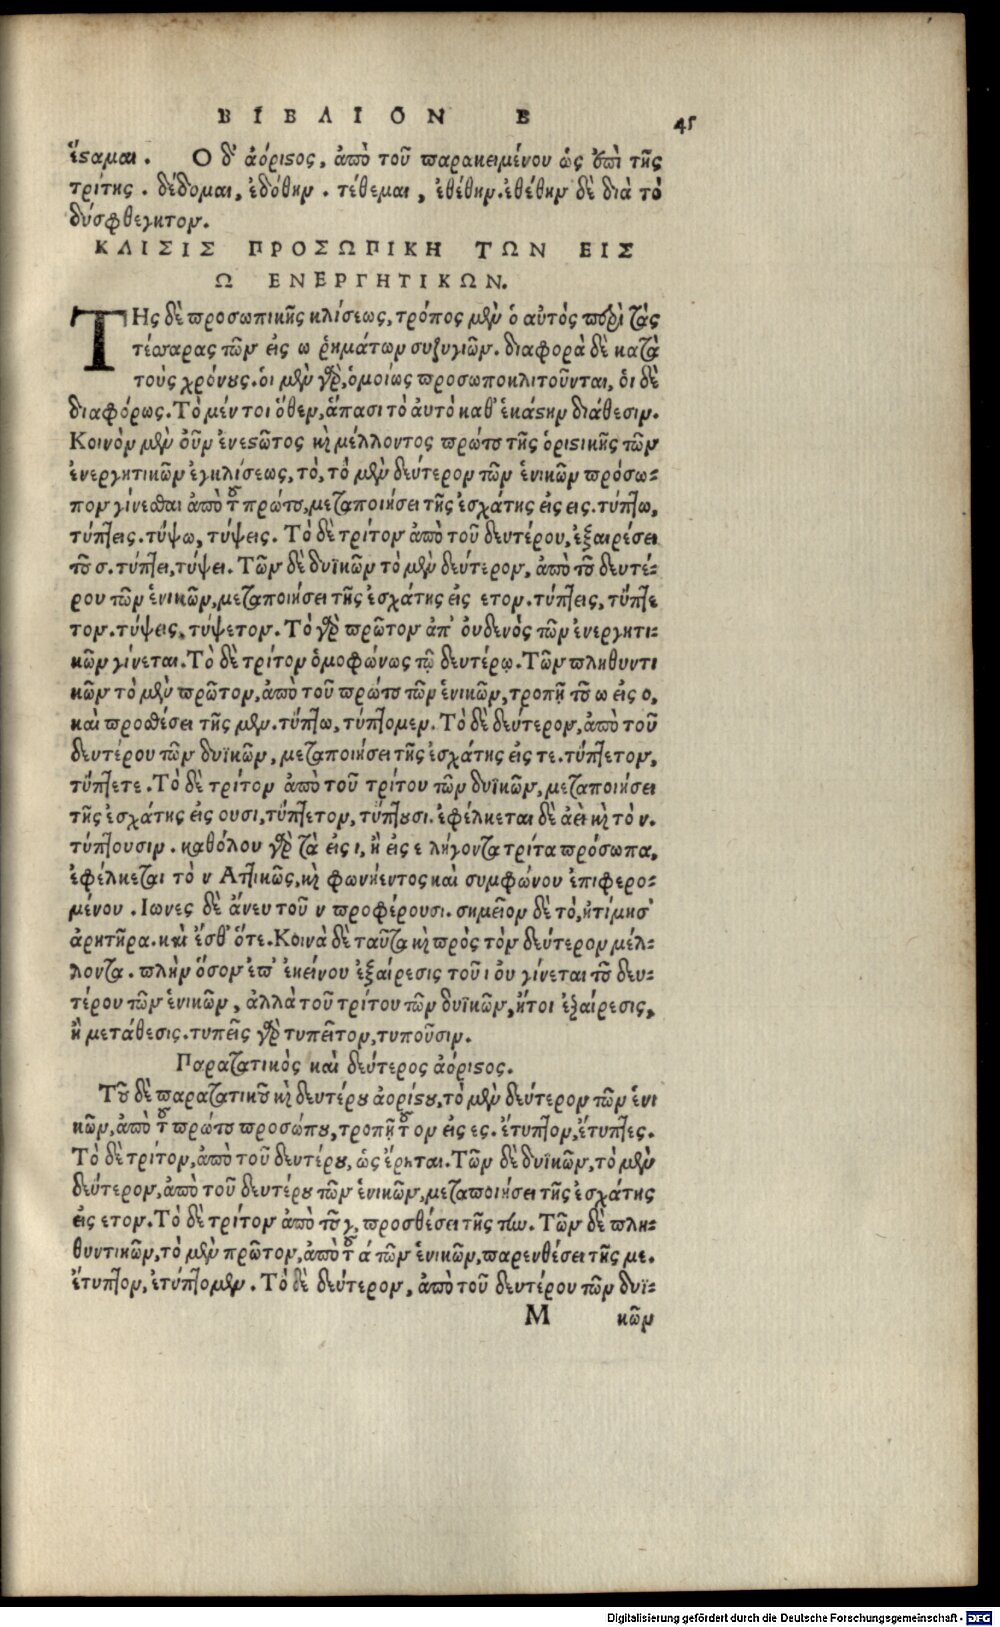 ΒΙΒΛΙΟΝ Β 45
ἕσαμαι. Ο δ' ἀόριστος, ἀπὸ τοῦ παρακειμένου ὡς ἐπὶ τῆς
τρίτης. δέδομαι, ἐδόθην. τέθεμαι, ἐθέθην. ἐθέθην δὲ διὰ τὸ
δύσφθεγκτον.
ΚΛΙΣΙΣ ΠΡΟΣΩΠΙΚΗ ΤΩΝ ΕΙΣ
Ω ΕΝΕΡΓΗΤΙΚΩΝ.
ΤΗς δὲ προσωπικῆς κλίσεως, τρόπος μὲν ὁ αὐτὸς περὶ τὰς
τέσσαρας τῶν εἰς ω ῥημάτων συζυγιῶν. διαφορὰ δὲ κατὰ
τοὺς χρόνους. οἱ μὲν γὰρ, ὁμοίως προσωποκλιτοῦνται, οἱ δὲ
διαφόρως. Τὸ μέν τοι ὅθεν, ἅπασι τὸ ἀυτὸ καθ' ἑκάστην διάθεσιν.
Κοινὸν μὲν οὖν ἐνεστῶτος καὶ μέλλοντος πρώτου τῆς ὁριστικῆς τῶν
ἐνεργητικῶν ἐγκλίσεως, τὸ, τὸ μὲν δεύτερον τῶν ἑνικῶν πρόσω-
πον γίνεσθαι ἀπὸ τοῦ πρώτου, μεταποιήσει τῆς ἐσχάτης εἰς εις. τύπτω,
τύπτεις. τύψω, τύψεις. Τὸ δὲ τρίτον ἀπὸ τοῦ δευτέρου, ἐξαιρέσει
τοῦ σ. τύπτει, τύψει. Τῶν δὲ δυϊκῶν τὸ μὲν δεύτερον, ἀπὸ τοῦ δευτέ-
ρου τῶν ἑνικῶν, μεταποιήσει τῆς ἐσχάτης εἰς ετον. τύπτεις, τύπτε
τον. τύψεις, τύψετον. Τὸ γὰρ πρῶτον ἀπ' ὀυδενὸς τῶν ἐνεργητι-
κῶν γίνεται. Τὸ δὲ τρίτον ὁμοφώνως τῷ δευτέρῳ. Τῶν πληθυντι
κῶν τὸ μὲν πρῶτον, ἀπὸ τοῦ πρώτου τῶν ἑνικῶν, τροπῇ τοῦ ω εἰς ο,
καὶ προσθέσει τῆς μεν. τύπτω, τύπτομεν. Τὸ δὲ δεύτερον, ἀπὸ τοῦ
δευτέρου τῶν δυϊκῶν, μεταποιήσει τῆς ἐσχάτης εἰς τε. τύπτετον,
τύπτετε. Τὸ δὲ τρίτον ἀπὸ τοῦ τρίτου τῶν δυϊκῶν, μεταποιήσει
τῆς ἐσχάτης εἰς ουσι, τύπτετον, τύπτουσι. ἐφέλκεται δὲ ἀεὶ καὶ τὸ ν.
τύπτουσιν. καθόλου γὰρ τὰ εἰς ι, ἢ εἰς ε λήγοντα τρίτα πρόσωπα,
ἐφέλκεται τὸ ν Αττικῶς, καὶ φωνήεντος καὶ συμφώνου ἐπιφερο-
μένου. Ιωνες δὲ ἄνευ τοῦ ν προφέρουσι. σημεῖον δὲ τὸ, ἠτίμησ'
ἀρητῆρα. καὶ ἔσθ' ὅτε. Κοινὰ δὲ ταῦτα καὶ πρὸς τὸν δεύτερον μέλ-
λοντα. πλὴν ὅσον ἐπ' ἐκείνου ἐξαίρεσις τοῦ ι ὀυ γίνεται τοῦ δευ-
τέρου τῶν ἑνικῶν, ἀλλὰ τοῦ τρίτου τῶν δυϊκῶν, ἤτοι ἐξαίρεσις,
ἢ μετάθεσις. τυπεῖς γὰρ τυπεῖτον, τυποῦσιν.
Παρατατικὸς καὶ δεύτερος ἀόριστος.
Τοῦ δὲ παρατατικοῦ καὶ δευτέρου ἀορίστου, τὸ μὲν δεύτερον τῶν ἑνι
κῶν, ἀπὸ τοῦ πρώτου προσώπου, τροπῇ τοῦ ον εἰς ες. ἔτυπτον, ἔτυπτες.
Τὸ δὲ τρίτον, ἀπὸ τοῦ δευτέρου, ὡς ἔρηται. Τῶν δὲ δυϊκῶν, τὸ μὲν
δεύτερον, ἀπὸ τοῦ δευτέρου τῶν ἑνικῶν, μεταποιήσει τῆς ἐσχάτης
εἰς ετον. Τὸ δὲ τρίτον ἀπὸ τοῦ γ, προσθέσει τῆς την. Τῶν δὲ πλη-
θυντικῶν, τὸ μὲν πρῶτον, ἀπὸ τοῦ ά τῶν ἑνικῶν, παρενθέσει τῆς με.
ἔτυπτον, ἐτύπτομεν. Τὸ δὲ δεύτερον, ἀπὸ τοῦ δευτέρου τῶν δυϊ-
Μ κῶν
Digitalisierung gefördert durch die Deutsche Forschungsgemeinschaft - DFG